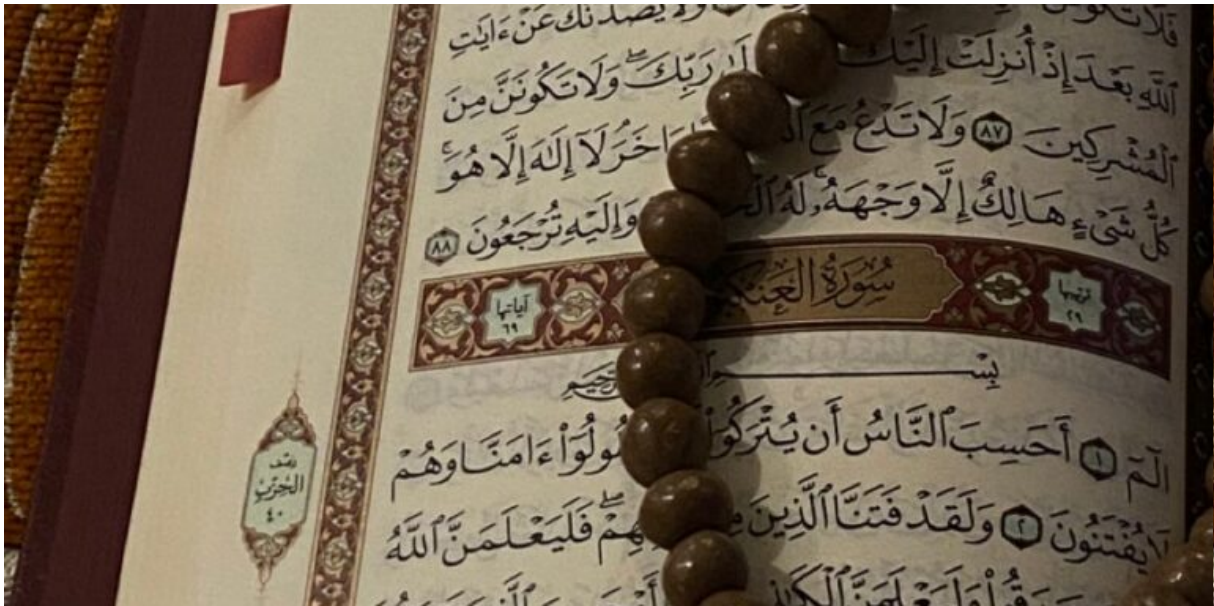 فَلَا تَكُونَنَّ
وَلَا يَصُدُّنَّكَ عَنْ ءَايَٰتِ
ٱللَّهِ بَعْدَ إِذْ أُنزِلَتْ إِلَيْكَ رَبِّكَ ۖ وَلَا تَكُونَنَّ مِنَ
ٱلْمُشْرِكِينَ ٨٧ وَلَا تَدْعُ مَعَ ءَاخَرَ لَآ إِلَٰهَ إِلَّا هُوَ ۚ
كُلُّ شَىْءٍ هَالِكٌ إِلَّا وَجْهَهُۥ ۚ لَهُ وَإِلَيْهِ تُرْجَعُونَ ٨٨
ترتيبها ٢٩
سُورَةُ العَنْكَبُوتِ
آياتها ٦٩
بِسْمِ ٱلرَّحِيمِ
الٓمٓ ١ أَحَسِبَ ٱلنَّاسُ أَن يُتْرَكُوٓا۟ يَقُولُوٓا۟ ءَامَنَّا وَهُمْ
لَا يُفْتَنُونَ ٢ وَلَقَدْ فَتَنَّا ٱلَّذِينَ قَبْلِهِمْ ۖ فَلَيَعْلَمَنَّ ٱللَّهُ
صَدَقُوا۟ وَلَيَعْلَمَنَّ ٱلْكَٰذِبِينَ
نصف
الحزب
٤٠